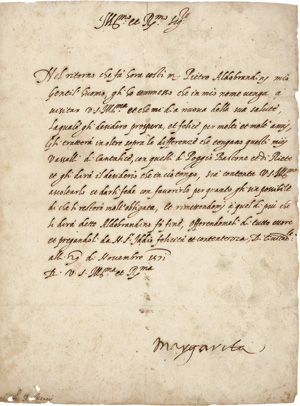 Ill.mo et R.mo Sig.re
Nel ritorno che fà hora costì m. Pietro Aldobrandino, mio
Gentil'huomo, gli hò commesso che in mio nome venga à
visitar V.S. Ill.ma et che mi dia nuova della sua salute,
laquale gli desidero prospera, et felice per molti et molt' anni,
Gli trattarà in oltre sopra le differenze che vengano quelli miei
Vassalli di Cantalice, con quelli di Poggio Bustone et di Riete
et gli dirà il desiderio che in ciò tengo, sia contenta V.S. Ill.ma
ascoltarlo et darli fede con favorirlo per quanto gli sia possibile
di che li restarò molt' obligata, et rimettendomi à quel di più che
li dirà detto Aldobrandino fò fine, offerendomeli di tutto cuore
et pregandoli da N.S. Iddio felicità et contentezza, Di
alli 29 di Novembre 1571
Di V.S. Ill.ma et R.ma
Margarita